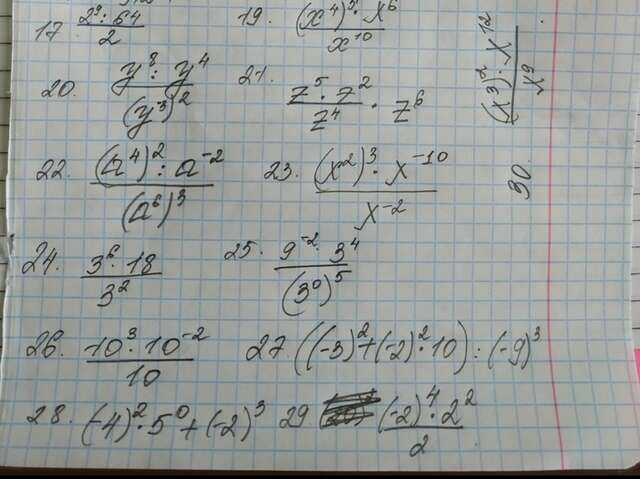 17. 2⁹ : 64 / 2 19. (x⁴)³ · x⁶ / x¹⁰
20. y⁸ : y⁴ / (y³)² 21. z⁵ · z² / z⁴ · z⁶
22. (a⁴)² : a⁻² / (a⁶)³ 23. (x²)³ · x⁻¹⁰ / x⁻²
24. 3⁶ · 18 / 3² 25. 9⁻² · 3⁴ / (3⁰)⁵
26. 10³ · 10⁻² / 10 27. ((-3)² + (-2)² · 10) : (-9)³
28. (-4)² · 5⁰ + (-2)³ 29. (-2)⁴ · 2² / 2
30. (x³)² : x¹² / x⁹